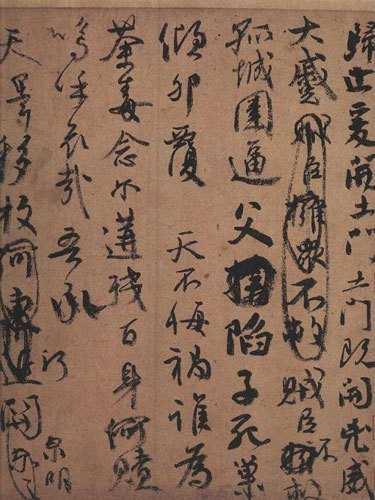 歸止爰開土門土門既開凶威
大蹙賊臣擁衆不救賊臣不救
孤城圍逼父陷子死巢
傾卵覆天不悔禍誰為
荼毒念爾遘殘百身何贖
嗚乎哀哉吾承
天澤移牧河關
泉明